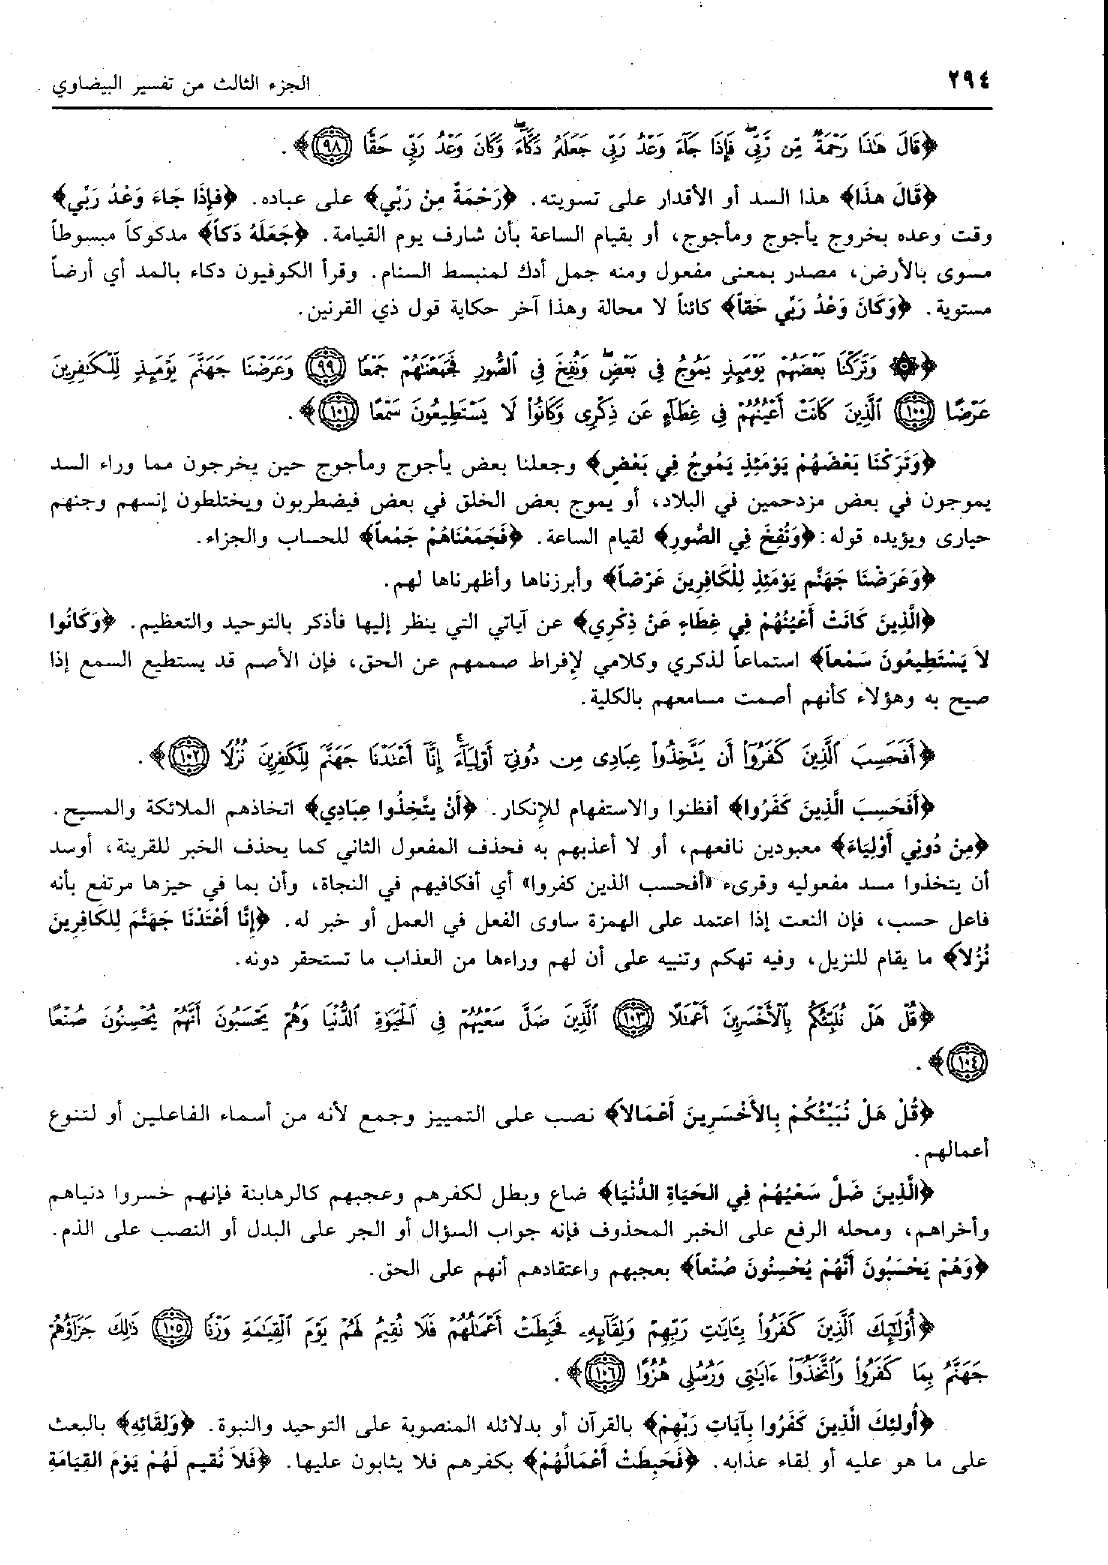 ٢٩٤
الجزء الثالث من تفسير البيضاوي
﴿قَالَ هَٰذَا رَحْمَةٌ مِّن رَّبِّي ۖ فَإِذَا جَآءَ وَعْدُ رَبِّي جَعَلَهُۥ دَكَّآءَ ۖ وَكَانَ وَعْدُ رَبِّي حَقًّا ﴿٩٨﴾﴾.
﴿قَالَ هذَا﴾ هذا السد أو الأقدار على تسويته. ﴿رَحْمَةٌ مِنْ رَبِّي﴾ على عباده. ﴿فإِذَا جَاءَ وَعْدُ رَبِّي﴾
وقت وعده بخروج يأجوج ومأجوج، أو بقيام الساعة بأن شارف يوم القيامة. ﴿جَعَلَهُ دَكاً﴾ مدكوكاً مبسوطاً
مسوى بالأرض، مصدر بمعنى مفعول ومنه جمل أدك لمنبسط السنام. وقرأ الكوفيون دكاء بالمد أي أرضاً
مستوية. ﴿وَكَانَ وَعْدُ رَبِّي حَقاً﴾ كائناً لا محالة وهذا آخر حكاية قول ذي القرنين.
﴿۞ وَتَرَكْنَا بَعْضَهُمْ يَوْمَئِذٍ يَمُوجُ فِي بَعْضٍ ۖ وَنُفِخَ فِي ٱلصُّورِ فَجَمَعْنَٰهُمْ جَمْعًا ﴿٩٩﴾ وَعَرَضْنَا جَهَنَّمَ يَوْمَئِذٍ لِّلْكَٰفِرِينَ
عَرْضًا ﴿١٠٠﴾ ٱلَّذِينَ كَانَتْ أَعْيُنُهُمْ فِي غِطَآءٍ عَن ذِكْرِي وَكَانُوا۟ لَا يَسْتَطِيعُونَ سَمْعًا ﴿١٠١﴾﴾.
﴿وَتَرَكْنَا بَعْضَهُمْ يَوْمَئِذٍ يَمُوجُ فِي بَعْضٍ﴾ وجعلنا بعض يأجوج ومأجوج حين يخرجون مما وراء السد
يموجون في بعض مزدحمين في البلاد، أو يموج بعض الخلق في بعض فيضطربون ويختلطون إنسهم وجنهم
حيارى ويؤيده قوله: ﴿وَنُفِخَ فِي الصُّورِ﴾ لقيام الساعة. ﴿فَجَمَعْنَاهُمْ جَمْعاً﴾ للحساب والجزاء.
﴿وَعَرَضْنَا جَهَنَّم يَوْمَئِذٍ لِلْكَافِرِينَ عَرْضاً﴾ وأبرزناها وأظهرناها لهم.
﴿الَّذِينَ كَانَتْ أَعْيُنُهُمْ فِي غِطَاءٍ عَنْ ذِكْرِي﴾ عن آياتي التي ينظر إليها فأذكر بالتوحيد والتعظيم. ﴿وَكَانُوا
لاَ يَسْتَطِيعُونَ سَمْعاً﴾ استماعاً لذكري وكلامي لإفراط صممهم عن الحق، فإن الأصم قد يستطيع السمع إذا
صيح به وهؤلاء كأنهم أصمت مسامعهم بالكلية.
﴿أَفَحَسِبَ ٱلَّذِينَ كَفَرُوٓا۟ أَن يَتَّخِذُوا۟ عِبَادِي مِن دُونِيٓ أَوْلِيَآءَ ۚ إِنَّآ أَعْتَدْنَا جَهَنَّمَ لِلْكَٰفِرِينَ نُزُلًا ﴿١٠٢﴾﴾.
﴿أَفَحَسِبَ الَّذِينَ كَفَرُوا﴾ أفظنوا والاستفهام للإنكار. ﴿أَنْ يتَّخِذُوا عِبَادِي﴾ اتخاذهم الملائكة والمسيح.
﴿مِنْ دُونِي أَوْلِيَاءَ﴾ معبودين نافعهم، أو لا أعذبهم به فحذف المفعول الثاني كما يحذف الخبر للقرينة، أوسد
أن يتخذوا مسد مفعوليه وقرىء «أفحسب الذين كفروا» أي أفكافيهم في النجاة، وأن بما في حيزها مرتفع بأنه
فاعل حسب، فإن النعت إذا اعتمد على الهمزة ساوى الفعل في العمل أو خبر له. ﴿إِنَّا أَعْتَدْنَا جَهَنَّمَ لِلكَافِرِينَ
نُزُلاً﴾ ما يقام للنزيل، وفيه تهكم وتنبيه على أن لهم وراءها من العذاب ما تستحقر دونه.
﴿قُلْ هَلْ نُنَبِّئُكُم بِٱلْأَخْسَرِينَ أَعْمَٰلًا ﴿١٠٣﴾ ٱلَّذِينَ ضَلَّ سَعْيُهُمْ فِي ٱلْحَيَوٰةِ ٱلدُّنْيَا وَهُمْ يَحْسَبُونَ أَنَّهُمْ يُحْسِنُونَ صُنْعًا
﴿١٠٤﴾﴾.
﴿قُلْ هَلْ نُنَبِّئُكُمْ بِالأَخْسَرِينَ أَعْمَالاً﴾ نصب على التمييز وجمع لأنه من أسماء الفاعلين أو لتنوع
أعمالهم.
﴿الَّذِينَ ضَلَّ سَعْيُهُمْ فِي الحَيَاةِ الدُّنْيَا﴾ ضاع وبطل لكفرهم وعجبهم كالرهابنة فإنهم خسروا دنياهم
وأخراهم، ومحله الرفع على الخبر المحذوف فإنه جواب السؤال أو الجر على البدل أو النصب على الذم.
﴿وَهُمْ يَحْسَبُونَ أَنَّهُمْ يُحْسِنُونَ صُنْعاً﴾ بعجبهم واعتقادهم أنهم على الحق.
﴿أُو۟لَٰٓئِكَ ٱلَّذِينَ كَفَرُوا۟ بِـَٔايَٰتِ رَبِّهِمْ وَلِقَآئِهِۦ فَحَبِطَتْ أَعْمَٰلُهُمْ فَلَا نُقِيمُ لَهُمْ يَوْمَ ٱلْقِيَٰمَةِ وَزْنًا ﴿١٠٥﴾ ذَٰلِكَ جَزَآؤُهُمْ
جَهَنَّمُ بِمَا كَفَرُوا۟ وَٱتَّخَذُوٓا۟ ءَايَٰتِي وَرُسُلِي هُزُوًا ﴿١٠٦﴾﴾.
﴿أُولئِكَ الَّذِينَ كَفَرُوا بِآيَاتِ رَبِّهِمْ﴾ بالقرآن أو بدلائله المنصوبة على التوحيد والنبوة. ﴿وَلِقَائِهِ﴾ بالبعث
على ما هو عليه أو لقاء عذابه. ﴿فَحَبِطَتْ أَعْمَالُهُمْ﴾ بكفرهم فلا يثابون عليها. ﴿فَلاَ نُقيم لَهُمْ يَوْمَ القِيَامَةِ